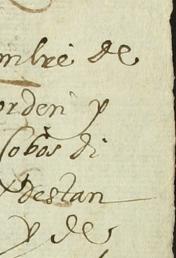 mbre de
orden y
Cobos di
destan
y de